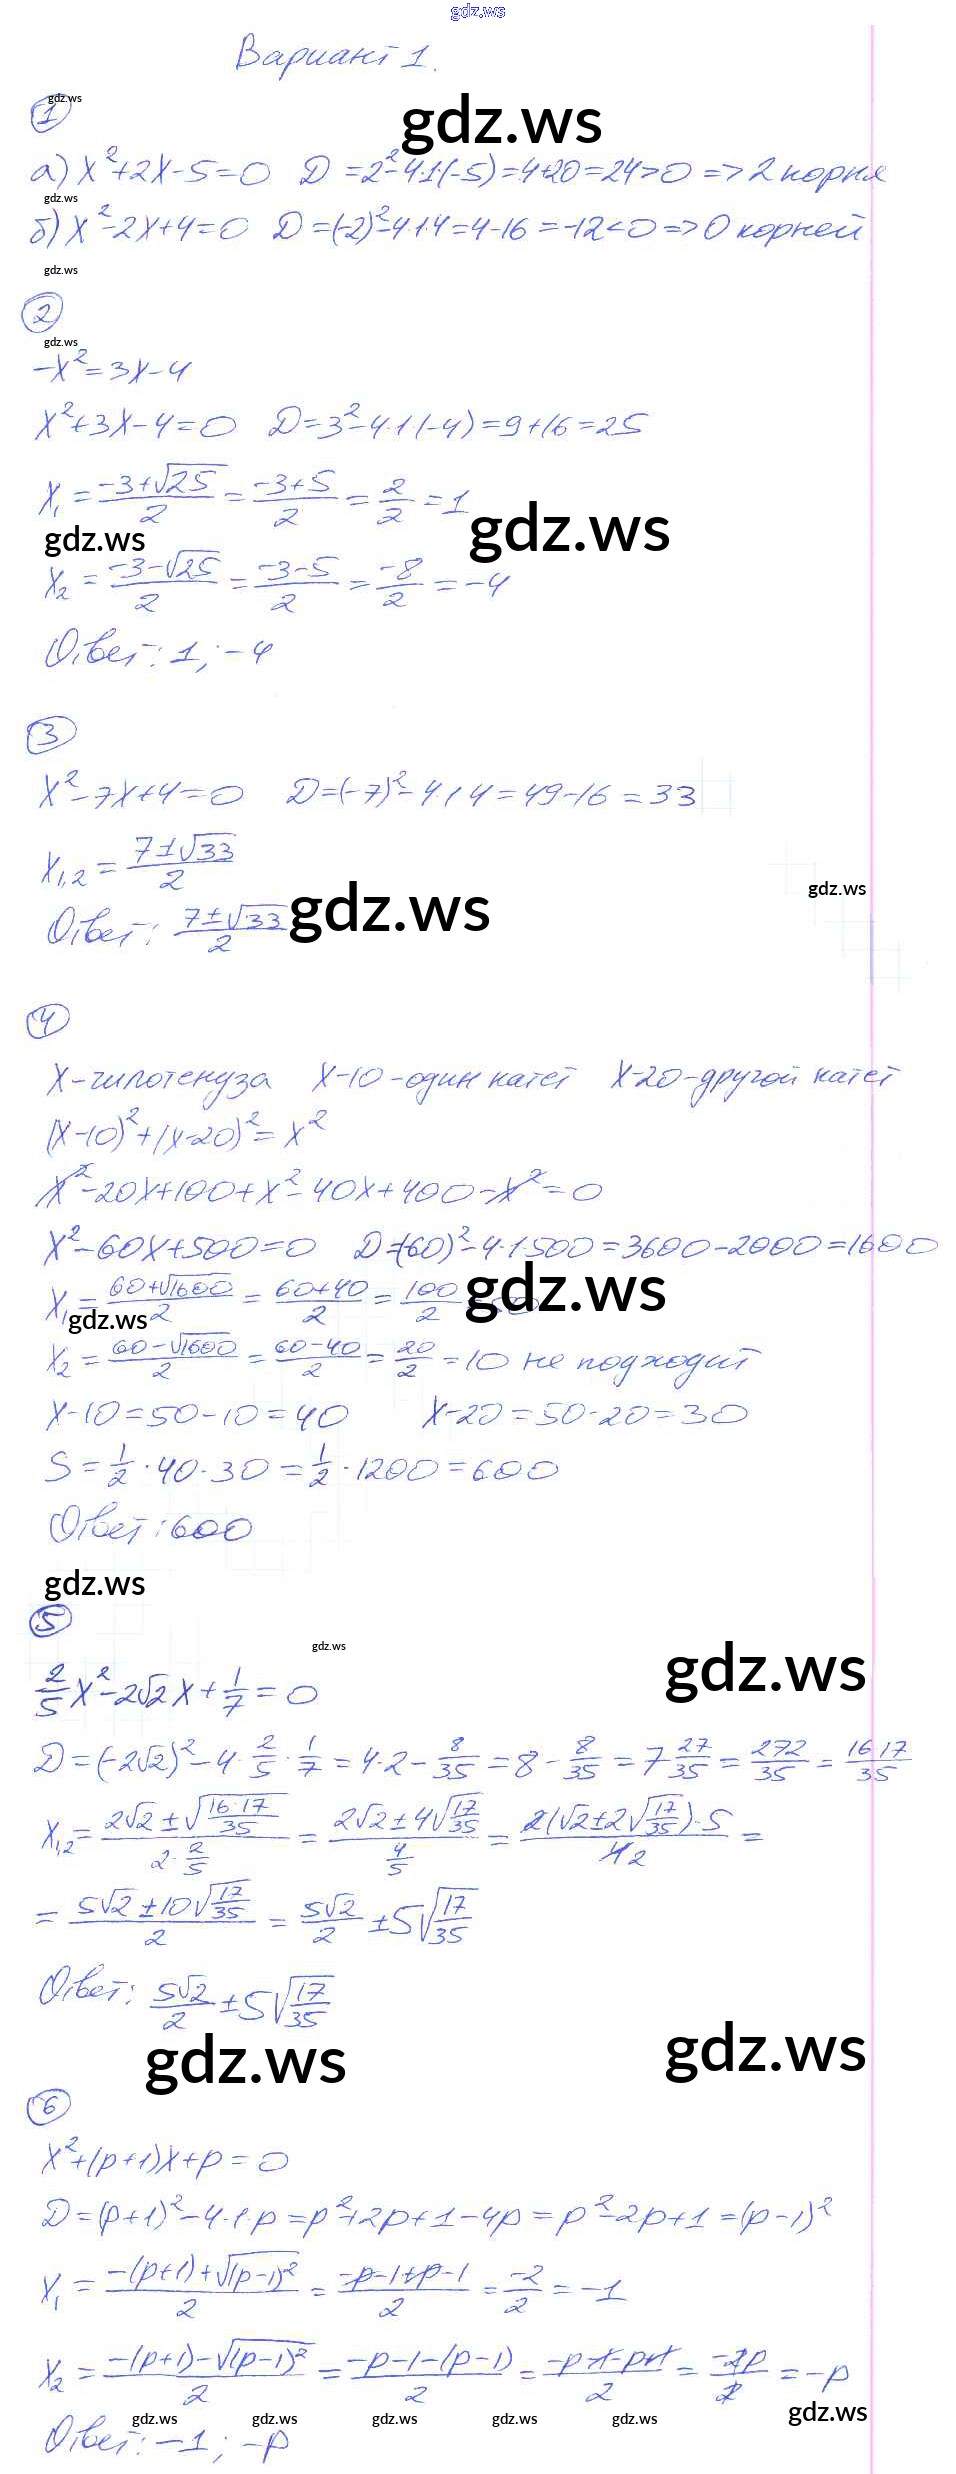 gdz.ws
Вариант 1.
1
gdz.ws
gdz.ws
а) x²+2x-5=0 D=2²-4·1·(-5)=4+20=24>0 => 2 корня
gdz.ws
б) x²-2x+4=0 D=(-2)²-4·1·4=4-16=-12<0 => 0 корней
gdz.ws
2
gdz.ws
-x²=3x-4
x²+3x-4=0 D=3²-4·1·(-4)=9+16=25
x₁=(-3+√25)/2=(-3+5)/2=2/2=1
gdz.ws gdz.ws
x₂=(-3-√25)/2=(-3-5)/2=-8/2=-4
Ответ: 1; -4
3
x²-7x+4=0 D=(-7)²-4·1·4=49-16=33
x₁,₂=(7±√33)/2
gdz.ws
Ответ: (7±√33)/2 gdz.ws
4
x-гипотенуза x-10-один катет x-20-другой катет
(x-10)²+(x-20)²=x²
x²-20x+100+x²-40x+400-x²=0
x²-60x+500=0 D=(-60)²-4·1·500=3600-2000=1600
x₁=(60+√1600)/2=(60+40)/2=100/2=50
gdz.ws gdz.ws
x₂=(60-√1600)/2=(60-40)/2=20/2=10 не подходит
x-10=50-10=40 x-20=50-20=30
S=1/2·40·30=1/2·1200=600
Ответ: 600
gdz.ws
5
gdz.ws
gdz.ws
2/5x²-2√2x+1/7=0
D=(-2√2)²-4·2/5·1/7=4·2-8/35=8-8/35=7 27/35=272/35=16·17/35
x₁,₂=(2√2±√(16·17/35))/(2·2/5)=(2√2±4√(17/35))/(4/5)=(2(√2±2√(17/35))·5)/(4 2)=
=(5√2±10√(17/35))/2=5√2/2±5√(17/35)
Ответ: 5√2/2±5√(17/35)
gdz.ws gdz.ws
6
x²+(p+1)x+p=0
D=(p+1)²-4·1·p=p²+2p+1-4p=p²-2p+1=(p-1)²
x₁=(-(p+1)+√(p-1)²)/2=(-p-1+p-1)/2=-2/2=-1
x₂=(-(p+1)-√(p-1)²)/2=(-p-1-(p-1))/2=(-p-1-p+1)/2=-2p/2=-p
gdz.ws gdz.ws gdz.ws gdz.ws gdz.ws gdz.ws
Ответ: -1; -p